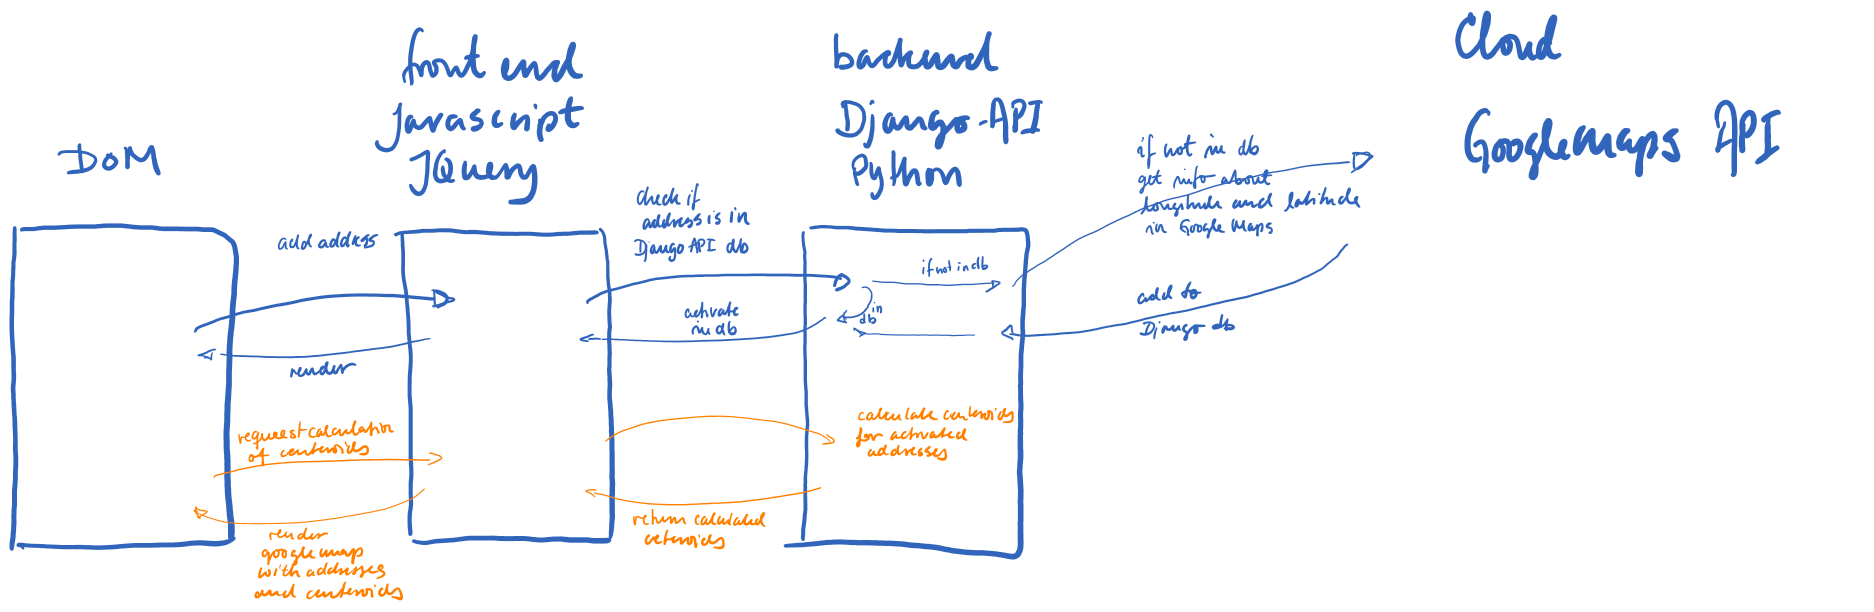 DOM
front end
Javascript
JQuery
backend
Django-API
Python
Cloud
Googlemaps API
add address
render
check if
address is in
Django API db
activate
in db
if not in db
in
db
if not in db
get info about
longitude and latitude
in Google Maps
add to
Django db
request calculation
of centeroids
render
google map
with addresses
and centeroids
return calculated
ceteroids
calculate centeroids
for activated
addresses